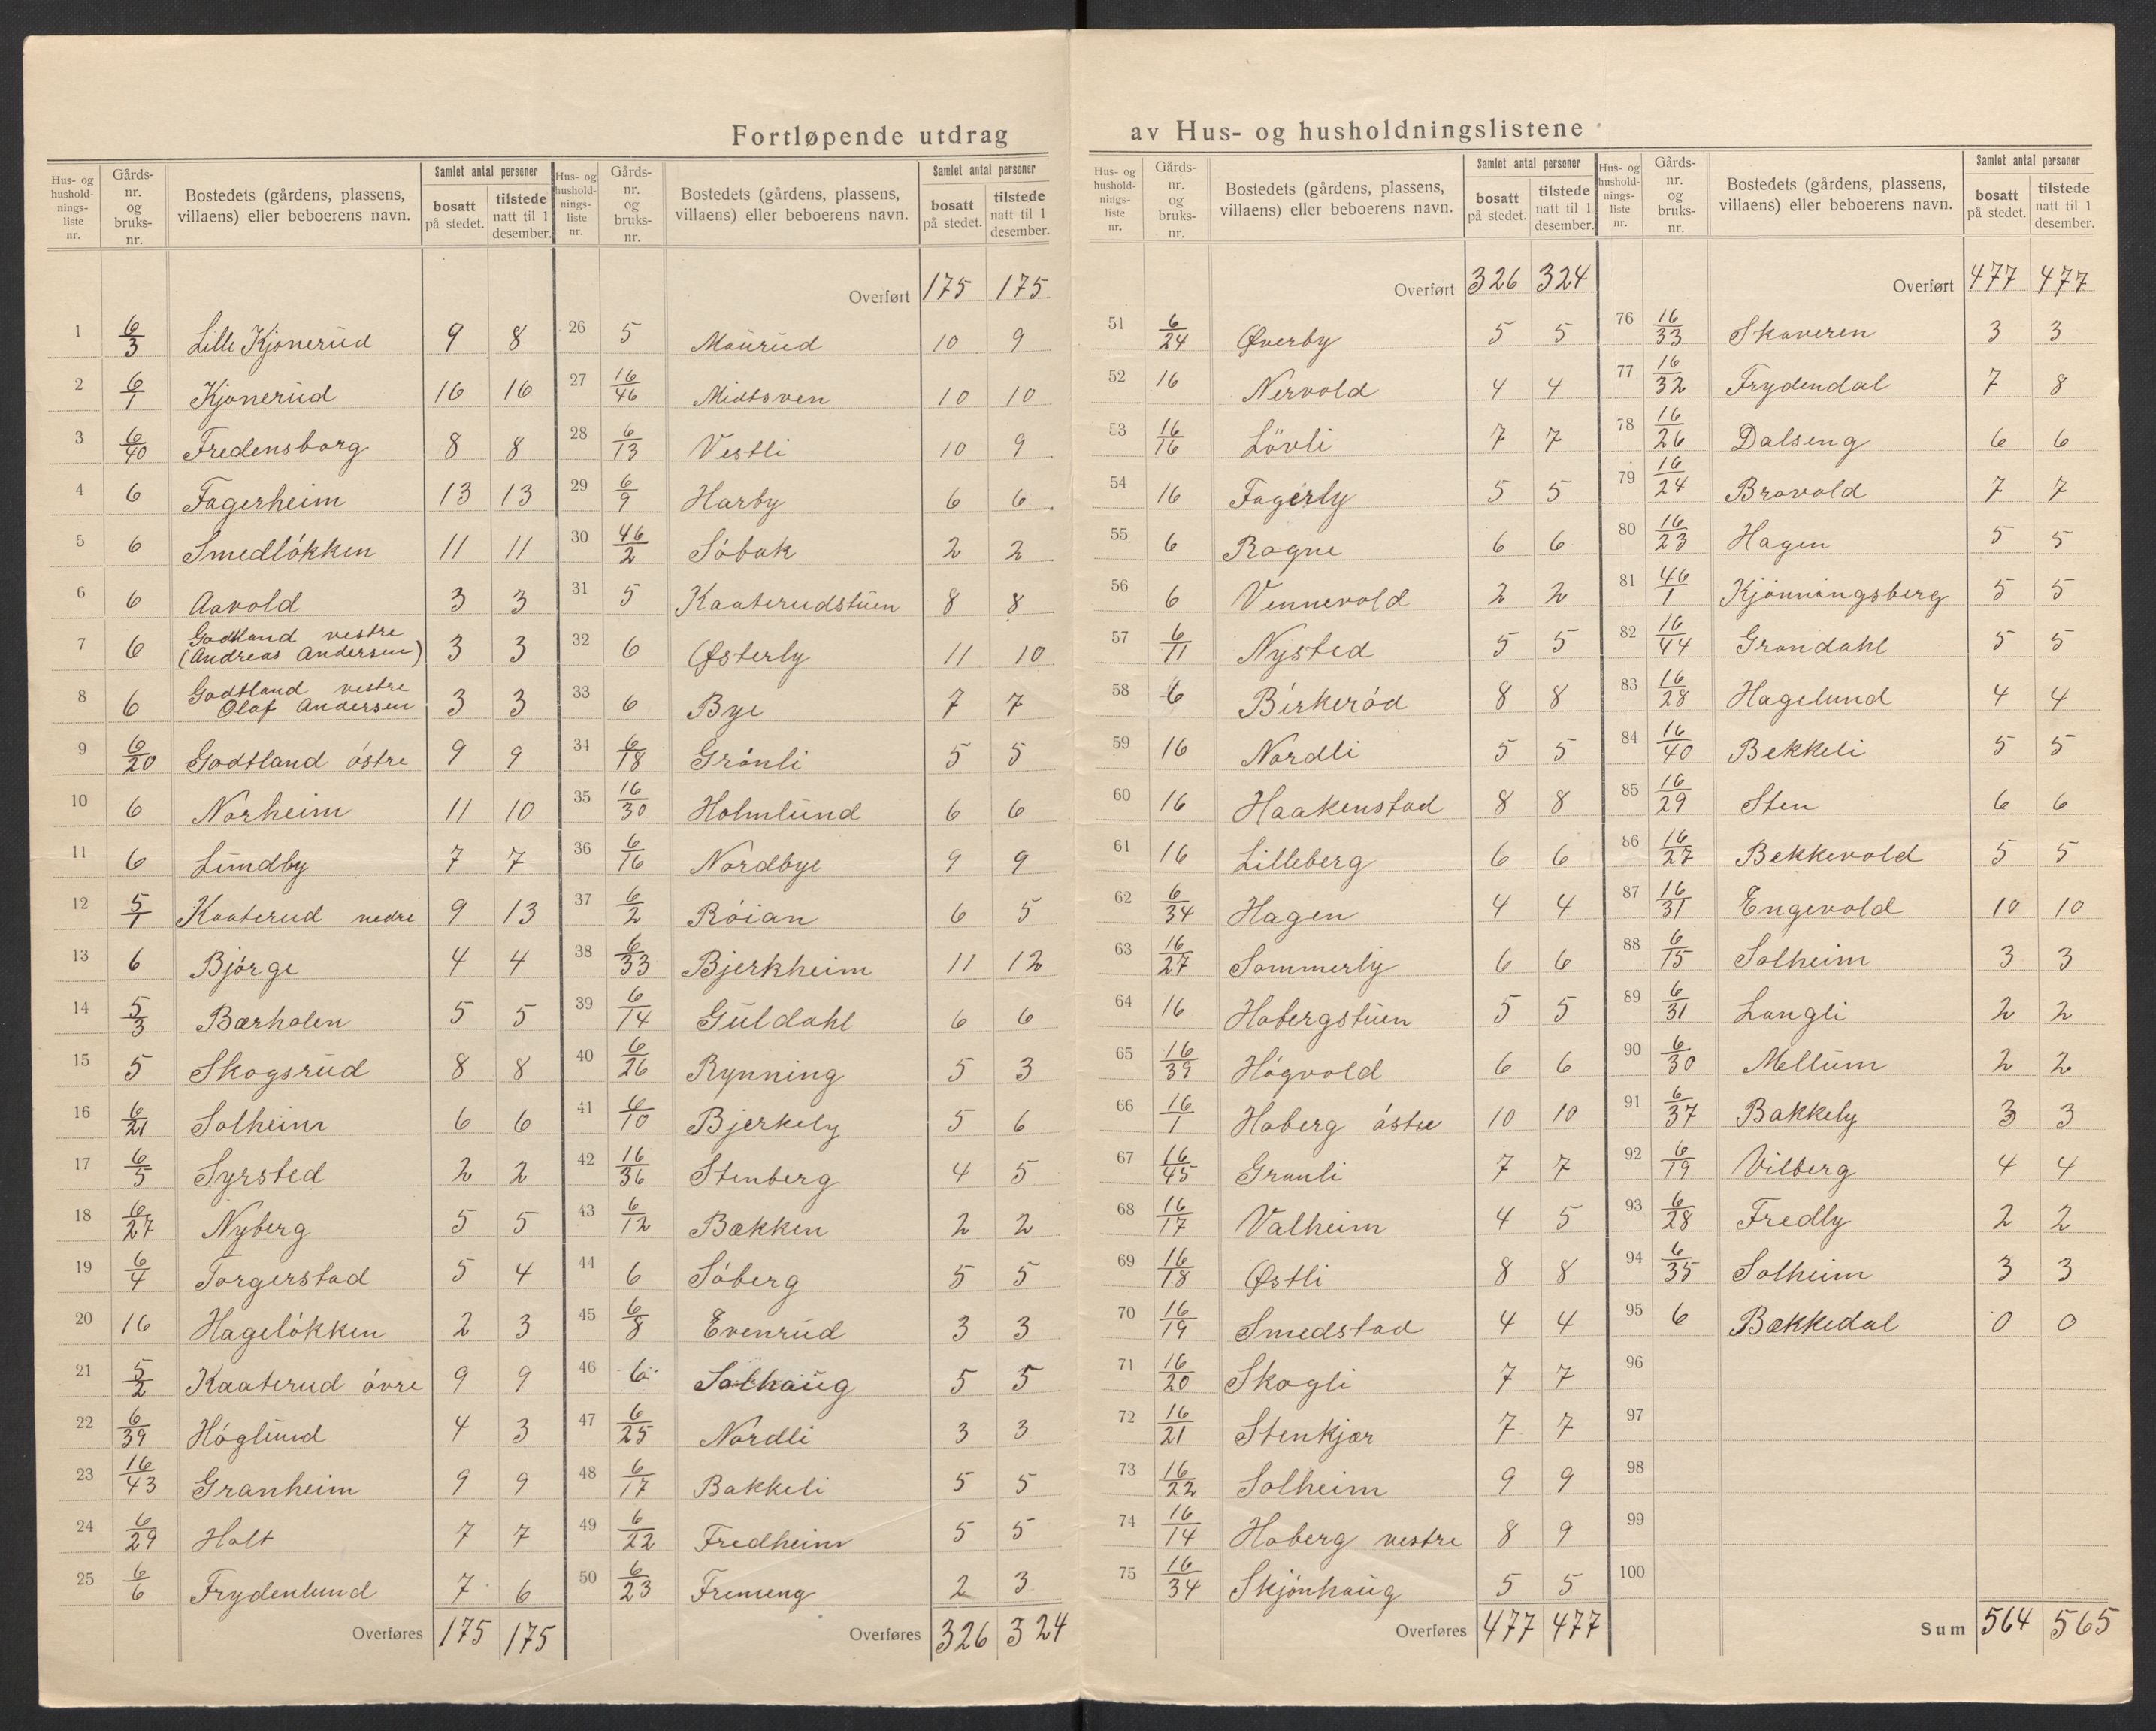 Fortløpende utdrag av Hus- og husholdningslistene
Hus- og husholdnings-liste nr. | Gårds-nr. og bruks-nr. | Bostedets (gårdens, plassens, villaens) eller beboerens navn. | Samlet antal personer | bosatt på stedet. | tilstede natt til 1 desember.
1 6/3 Lille Kjonerud 9 8
2 6/1 Kjonerud 16 16
3 6/40 Fredensborg 8 8
4 6 Fagerheim 13 13
5 6 Smedløkken 11 11
6 6 Aavold 3 3
7 6 Godtland vestre (Andreas Andersen) 3 3
8 6 Godtland vestre Olaf Andersen 3 3
9 6/20 Godtland østre 9 9
10 6 Norheim 11 10
11 6 Lundby 7 7
12 5/1 Kaaterud nedre 9 13
13 6 Bjørge 4 4
14 5/3 Bærholen 5 5
15 5 Skogsrud 8 8
16 6/21 Solheim 6 6
17 6/5 Syrsted 2 2
18 6/27 Nyberg 5 5
19 6/4 Torgerstad 5 4
20 16 Hageløkken 2 3
21 5/2 Kaaterud øvre 9 9
22 6/39 Høglund 4 3
23 16/43 Granheim 9 9
24 6/29 Holt 7 7
25 6/6 Frydenlund 7 6
Overføres 175 175
Hus- og husholdnings-liste nr. | Gårds-nr. og bruks-nr. | Bostedets (gårdens, plassens, villaens) eller beboerens navn. | Samlet antal personer | bosatt på stedet. | tilstede natt til 1 desember.
Overført 175 175
26 5 Maurud 10 9
27 16/46 Midtsven 10 10
28 6/13 Vestli 10 9
29 6/9 Harby 6 6
30 46/2 Søbak 2 2
31 5 Kaaterudstuen 8 8
32 6 Østerly 11 10
33 6 Bye 7 7
34 6/18 Grønli 5 5
35 16/30 Holmlund 6 6
36 6/16 Nordbye 9 9
37 6/2 Røian 6 5
38 6/33 Bjerkheim 11 12
39 6/14 Guldahl 6 6
40 6/26 Rynning 5 3
41 6/10 Bjerkely 5 6
42 16/36 Stenberg 4 5
43 6/12 Bækken 2 2
44 6 Søberg 5 5
45 6/8 Evenrud 3 3
46 6 Solhaug 5 5
47 6/25 Nordli 3 3
48 6/17 Bakkeli 5 5
49 6/22 Fredheim 5 5
50 6/23 Fremeng 2 3
Overføres 326 324
Hus- og husholdnings-liste nr. | Gårds-nr. og bruks-nr. | Bostedets (gårdens, plassens, villaens) eller beboerens navn. | Samlet antal personer | bosatt på stedet. | tilstede natt til 1 desember.
Overført 326 324
51 6/24 Øverby 5 5
52 16 Nervold 4 4
53 16/16 Lövli 7 7
54 16 Fagerly 5 5
55 6 Rogne 6 6
56 6 Vennevold 2 2
57 6/11 Nysted 5 5
58 6 Birkerød 8 8
59 16 Nordli 5 5
60 16 Haakenstad 8 8
61 16 Lilleberg 6 6
62 6/34 Hagen 4 4
63 16/27 Sommerly 6 6
64 16 Hobergstuen 5 5
65 16/39 Høgvold 6 6
66 16/1 Hoberg østre 10 10
67 16/45 Granli 7 7
68 16/17 Valheim 4 5
69 16/18 Østli 8 8
70 16/19 Smedstad 4 4
71 16/20 Skogli 7 7
72 16/21 Stenkjær 7 7
73 16/22 Solheim 9 9
74 16/14 Hoberg vestre 8 9
75 16/34 Skjønhaug 5 5
Overføres 477 477
Hus- og husholdnings-liste nr. | Gårds-nr. og bruks-nr. | Bostedets (gårdens, plassens, villaens) eller beboerens navn. | Samlet antal personer | bosatt på stedet. | tilstede natt til 1 desember.
Overført 477 477
76 16/33 Skaveren 3 3
77 16/32 Frydendal 7 8
78 16/26 Dalseng 6 6
79 16/24 Bravold 7 7
80 16/23 Hagen 5 5
81 46/1 Kjønningsberg 5 5
82 16/44 Grandahl 5 5
83 16/28 Hagelund 4 4
84 16/40 Bekkeli 5 5
85 16/29 Sten 6 6
86 16/27 Bekkevold 5 5
87 16/31 Engevold 10 10
88 6/15 Solheim 3 3
89 6/31 Langli 2 2
90 6/30 Mellum 2 2
91 6/37 Bakkely 3 3
92 6/19 Vilberg 4 4
93 6/28 Fredly 2 2
94 6/35 Solheim 3 3
95 6 Bækkedal 0 0
96
97
98
99
100
Sum 564 565